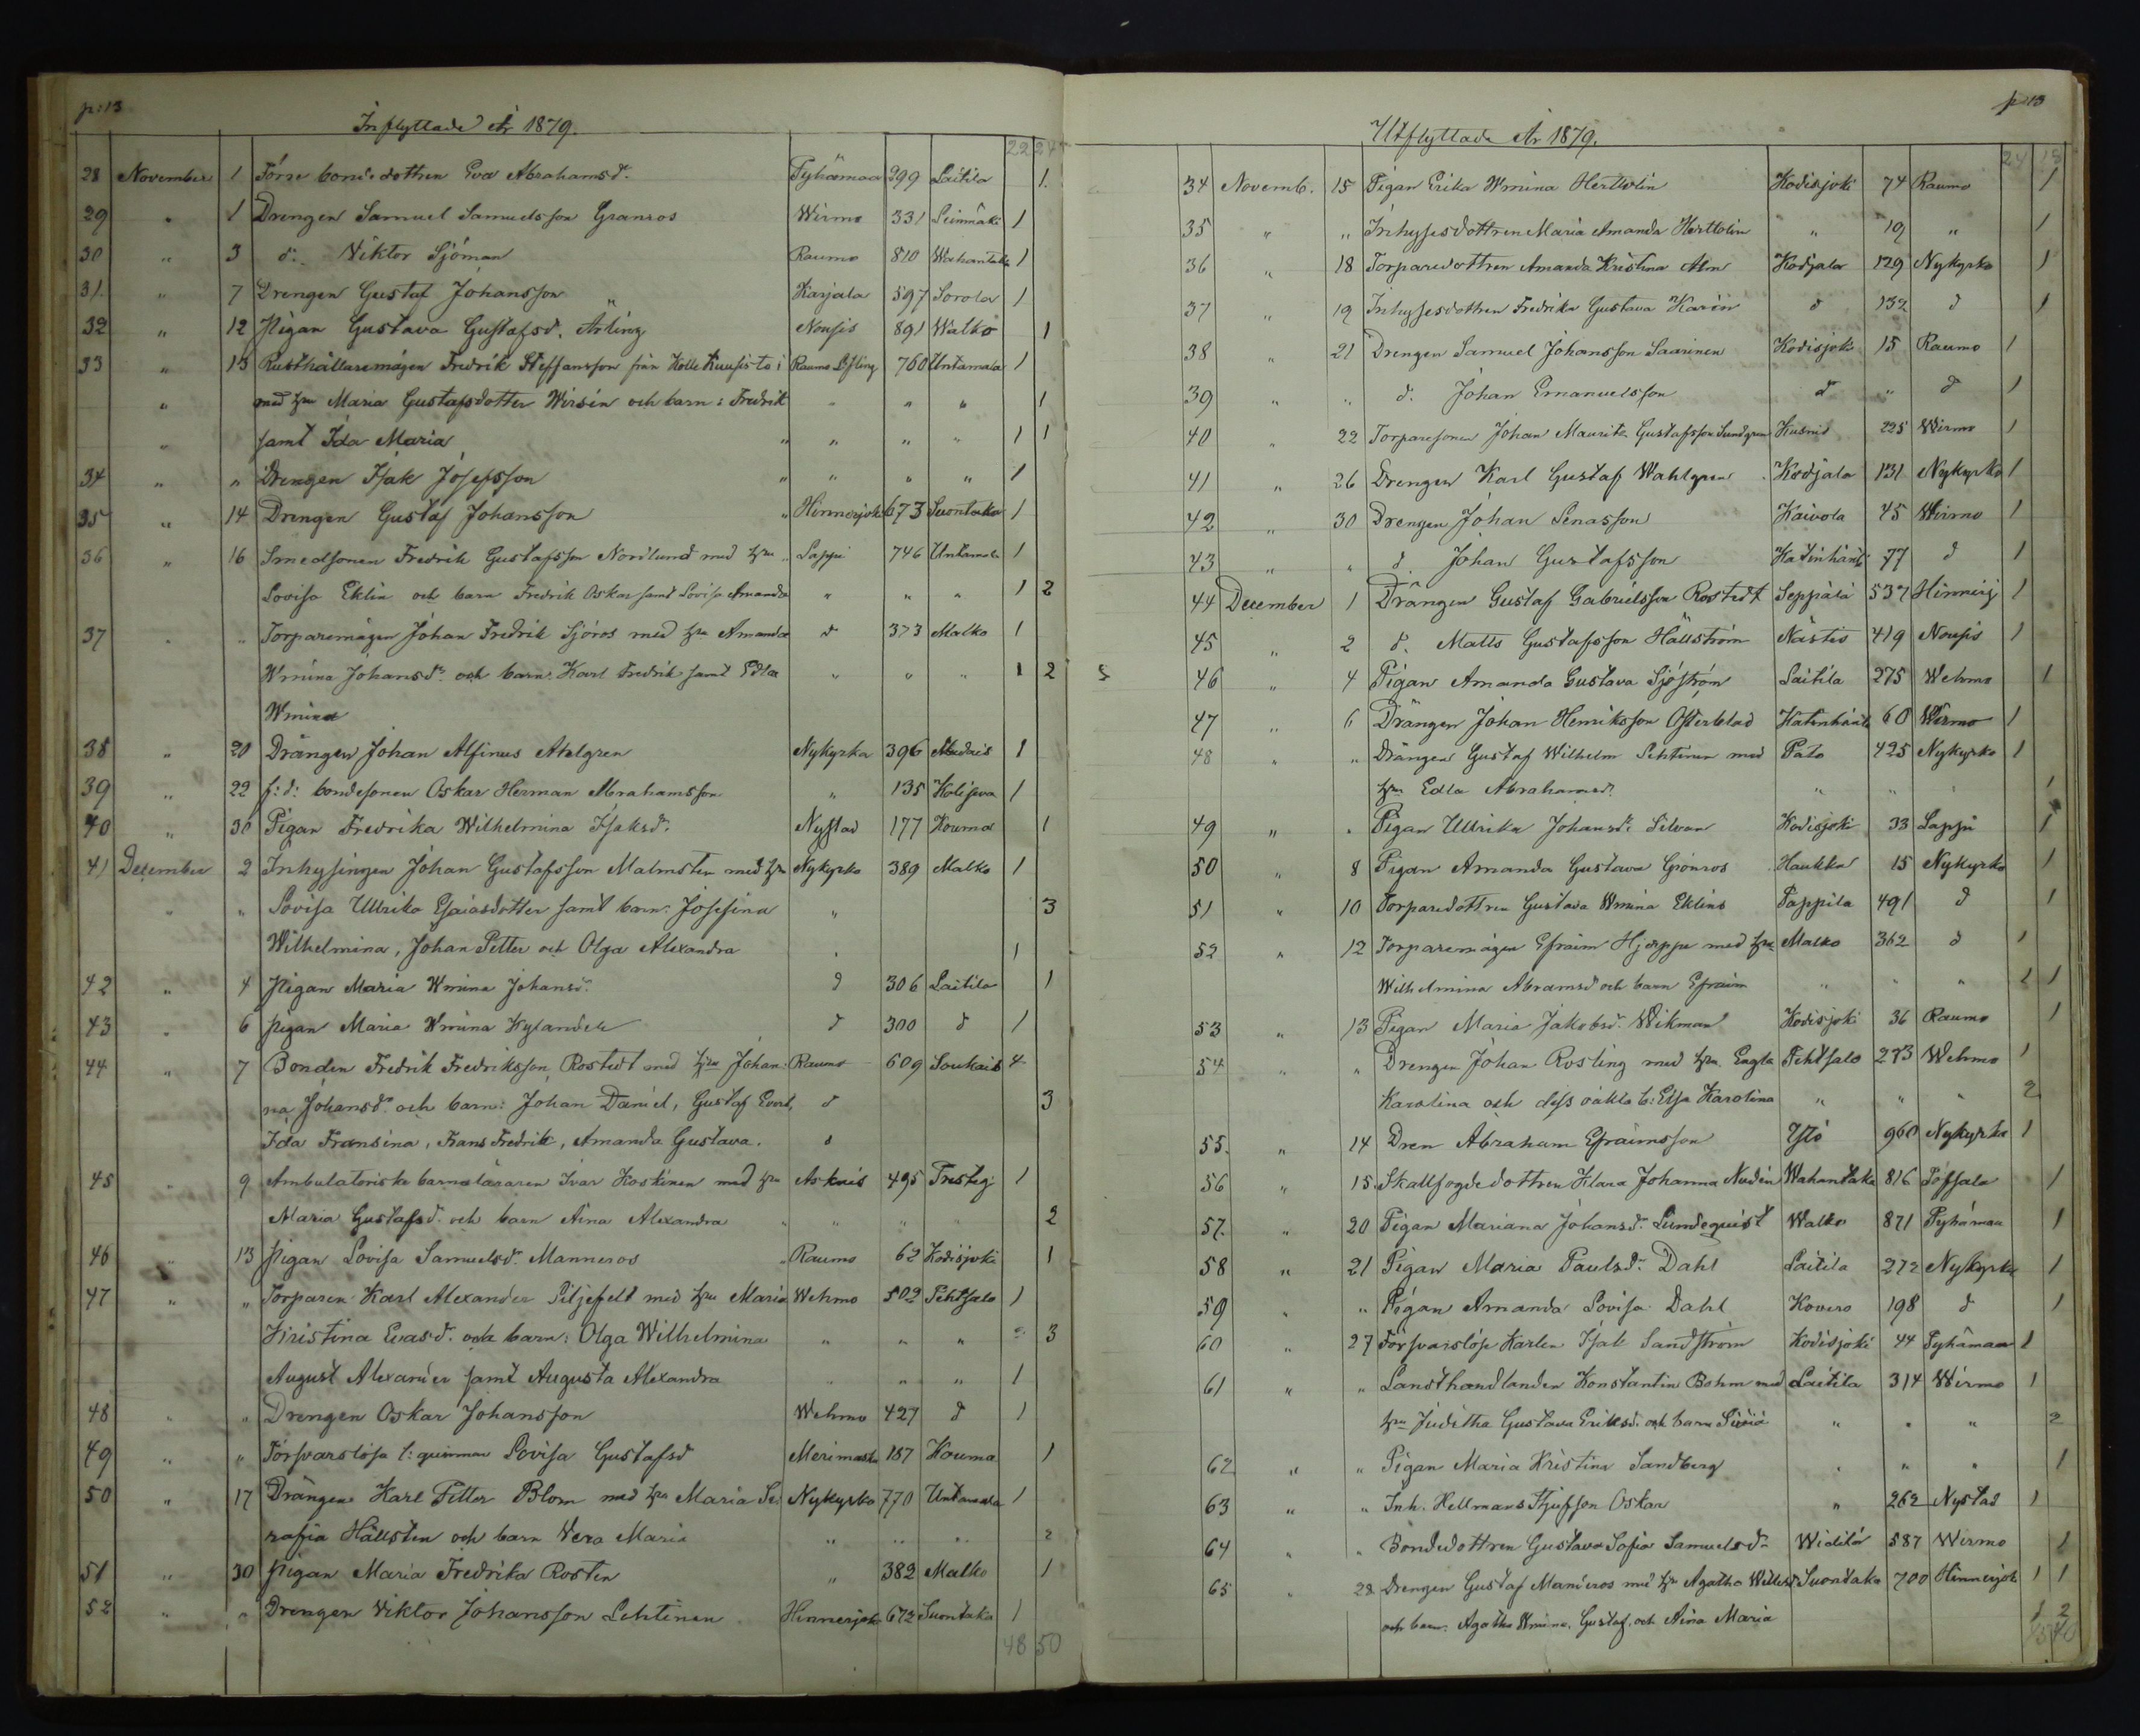 p: 13
Inflyttade År 1879.
22 24
28 November 1 Förre bondedottren Eva Abrahamsd. Pyhämaa 299 Laitila 1
29 " 1 Drengen Samuel Samuelsson Granros Wirmo 331 Leinmäki 1
30 " 3 d: Viktor Sjöman Raumo 810 Wahantaka 1
31 " 7 Drengen Gustaf Johansson Karjala 597 Sorola 1
32 " 12 Pigan Gustava Gustafsd. Arling Nousis 891 Walko 1
33 " 13 Rusthållaremågen Fredrik Steffansson från Kolle Kuusisto i Raumo 760 Untamala 1
" med hu Maria Gustafsdotter Wirsén och barn: Fredrik " " " 1
" samt Ida Maria " " " 1 1
34 " " Drengen Isak Josefsson " " " 1
35 " 14 Drengen Gustaf Johansson Hinnerjoki 673 Suontaka 1
36 " 16 Smedsonen Fredrik Gustafsson Nordlund med hu Lappi 746 Untamala 1
Lovisa Eklin och barn Fredrik Oskar samt Lovisa Amanda " " " 1 2
37 " " Torparemågen Johan Fredrik Sjöros med hu Amanda d 373 Malko 1
Wmina Johansdr och barn: Karl Fredrik samt Edla " " " 1 2
Wmina
38 " 20 Drängen Johan Alfinus Ahlgren Nykyrka 396 1
39 " 22 f: d: bondesonen Oskar Herman Abrahamsson " 135 Koliseva 1
40 " 30 Pigan Fredrika Wilhelmina Isaksdr. Nystad 177 Kouma 1
41 December 2 Inhysingen Johan Gustafsson Malmsten med hu Nykyrko 389 Malko 1
" " Lovisa Ullrika Esaiasdotter samt barn: Josefina " 3
Wilhelmina, Johan Petter och Olga Alexandra " 1
42 " 4 Pigan Maria Wmina Johansdr. d 306 Laitila 1
43 " 6 Pigan Maria Wmina Kylandek d 300 d 1
44 " 7 Bonden Fredrik Fredriksson Rostedt med hu Johan- Raumo 609 Soukais 4
na Johansdr. och barn: Johan Daniel, Gustaf Evert, d 3
Ida Fransina, Frans Fredrik, Amanda Gustava. d
45 " 9 Ambulatoriske barnaläraren Ivar Koskinen med hu Askais 495 Presteg 1
Maria Gustafsd. och barn Aina Alexandra " " " 2
46 " 13 Pigan Lovisa Samuelsdr. Manneros Raumo 62 Kodisjoki 1
47 " " Torparen Karl Alexander Liljefelt med hu Maria Wehmo 502 Tehtsalo 1
Kristina Evasd. och barn: Olga Wilhelmina " " " 3
August Alexander samt Augusta Alexandra " " " 1
48 " " Drengen Oskar Johansson Wehmo 427 d 1
49 " " Försvarslösa l: quinnan Lovisa Gustafsd Merimasku 187 Kouma 1
50 " 17 Drängen Karl Petter Blom med hu Maria Se- Nykyrko 770 Untamala 1
rafia Hällsten och barn Vera Maria " " " 2
51 " 30 Pigan Maria Fredrika Rosten " 382 Malko 1
52 " " Drengen Viktor Johansson Lehtinen Hinnerjoki 672 Suontaka 1
48 50
p: 13
Utflyttade År 1879.
24 18
34 Novemb. 15 Pigan Erika Wmina Herttolin Kodisjoki 74 Raumo 1
35 " " Inhysesdottren Maria Amanda Herttolin " 19 " 1
36 " 18 Torparedottren Amanda Kristina Alm Kodjala 129 Nykyrko 1
37 " 19 Inhysesdottren Fredrika Gustava Karin d 132 d 1
38 " 21 Drengen Samuel Johansson Saarinen Kodisjoki 15 Raumo 1
39 " " d. Johan Emanuelsson d " d 1
40 " 22 Torparesonen Johan Maurits Gustafsson Sundgren 225 Wirmo 1
41 " 26 Drengen Karl Gustaf Wahlgren Kodjala 131 Nykyrko 1
42 " 30 Drengen Johan Lenasson Kaivola 45 Wirmo 1
43 " " d. Johan Gustafsson Katinhänta 77 d 1
44 December 1 Drängen Gustaf Gabrielsson Rostedt Seppälä 537 Hinnerj 1
45 " 2 d. Matts Gustafsson Hällström Nästis 419 Nousis 1
46 " 4 Pigan Amanda Gustava Sjöström Laitila 275 Wehmo 1
47 " 6 Drängen Johan Henriksson Osterblad Katinhänta 60 Wirmo 1
48 " " Drängen Gustaf Wilhelm Lehtinen med Pato 425 Nykyrko 1
hu Edla Abrahamsd. " " " 1
49 " " Pigan Ullrika Johansdr Silvan Kodisjoki 33 Lappi 1
50 " 8 Pigan Amanda Gustava Grönros Haukka 15 Nykyrko 1
51 " 10 Torparedottren Gustava Wmina Eklins Pappila 491 d 1
52 " 12 Torparemågen Efraim Hjerppe med hu Malko 362 d 1
Wilhelmina Abramsd och barn Efraim " " " 1 1
53 " 13 Pigan Maria Jakobsdr. Wikman Kodisjoki 36 Raumo 1
54 " " Drengen Johan Rosling med hu Engla Tehtsalo 273 Wehmo 1
Karolina och dess oäkta b: Elsa Karolina " " " 2
55. " 14 Dren Abraham Efraimsson 960 Nykyrka 1
56 " 15. Skallfogdedottren Klara Johanna Nudin Wahantaka 816 Töfsala 1
57. " 20 Pigan Mariana Johansdr. Lundequist Walko 871 Pyhämaa 1
58 " 21 Pigan Maria Paulsdr. Dahl Laitila 272 Nykyrka 1
59 " " Pigan Amanda Lovisa Dahl Kovero 198 d 1
60 " 27 Försvarslöse Karlen Isak Sandström Kodisjoki 44 Pyhämaa 1
61 " " Landthandlanden Konstantin Bohm med Laitila 314 Wirmo 1
hu Juditha Gustava Eriksd. och barn " " " 2
62 " " Pigan Maria Kristina Sandberg " " " 1
63 " " Inh. Hellmans Stjufson Oskar " 262 Nystad 1
64 " " Bondedottren Gustava Sofia Samuelsdr Widilä 587 Wirmo 1
65 " 28 Drengen Gustaf Maneros med hu Agatha Suontaka 700 Hinnerjoki 1 1
och barn: Agatha Wmina, Gustaf, och Aina Maria 1 2